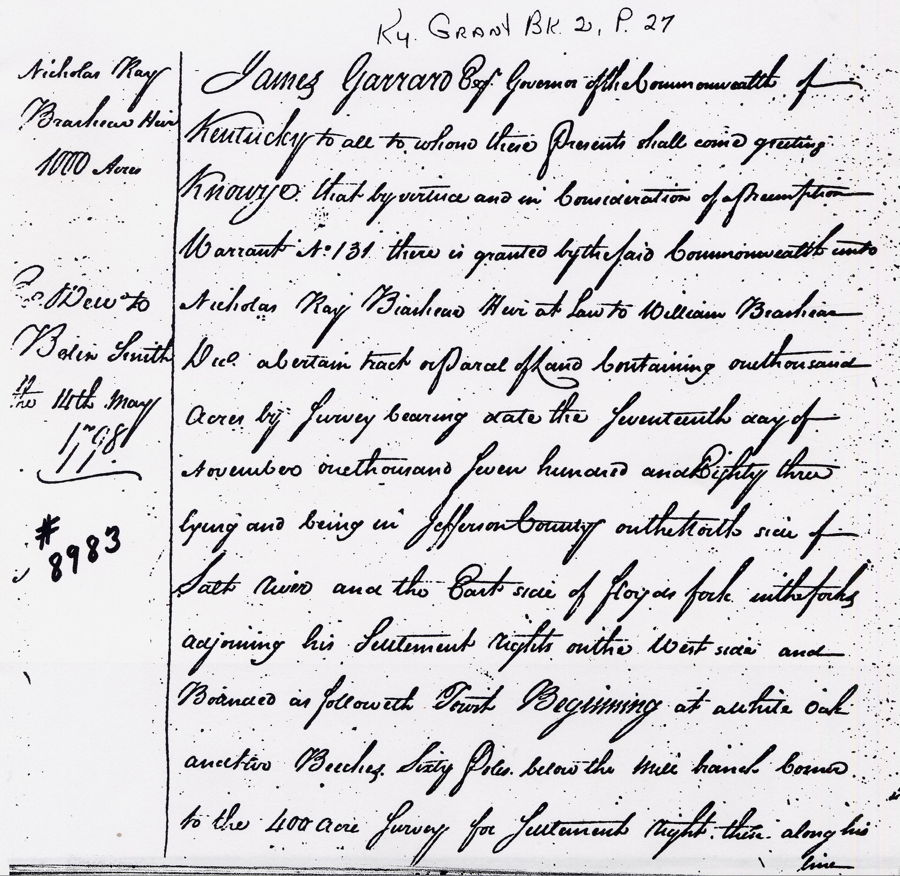 Ky. GRANT BK. 2, P. 27
Nicholas Ray
Brashear Heir
1000 Acres
Delvd to
Smith
the 14th May
1798
#
8983
James Garrard Esqr. Governor of the Commonwealth of
Kentucky to all to whome these Presents shall come greeting
Know ye that by virtue and in Consideration of a Preemption
Warrant No. 131 there is granted by the said Commonwealth unto
Nicholas Ray Brashear Heir at Law to William Brashear
Decd. a Certain tract or Parcel of Land Containing one thousand
Acres by Survey bearing date the Seventeenth day of
November one thousand Seven hundred and Eighty three
lying and being in Jefferson County on the North side of
Salt River and the East side of floyds fork in the forks
adjoining his Settlement rights on the West side and
Bounded as followeth Towit Beginning at a white Oak
and two Beeches Sixty Poles below the mill branch Corner
to the 400 acre Survey for Settlement right. then along his
line